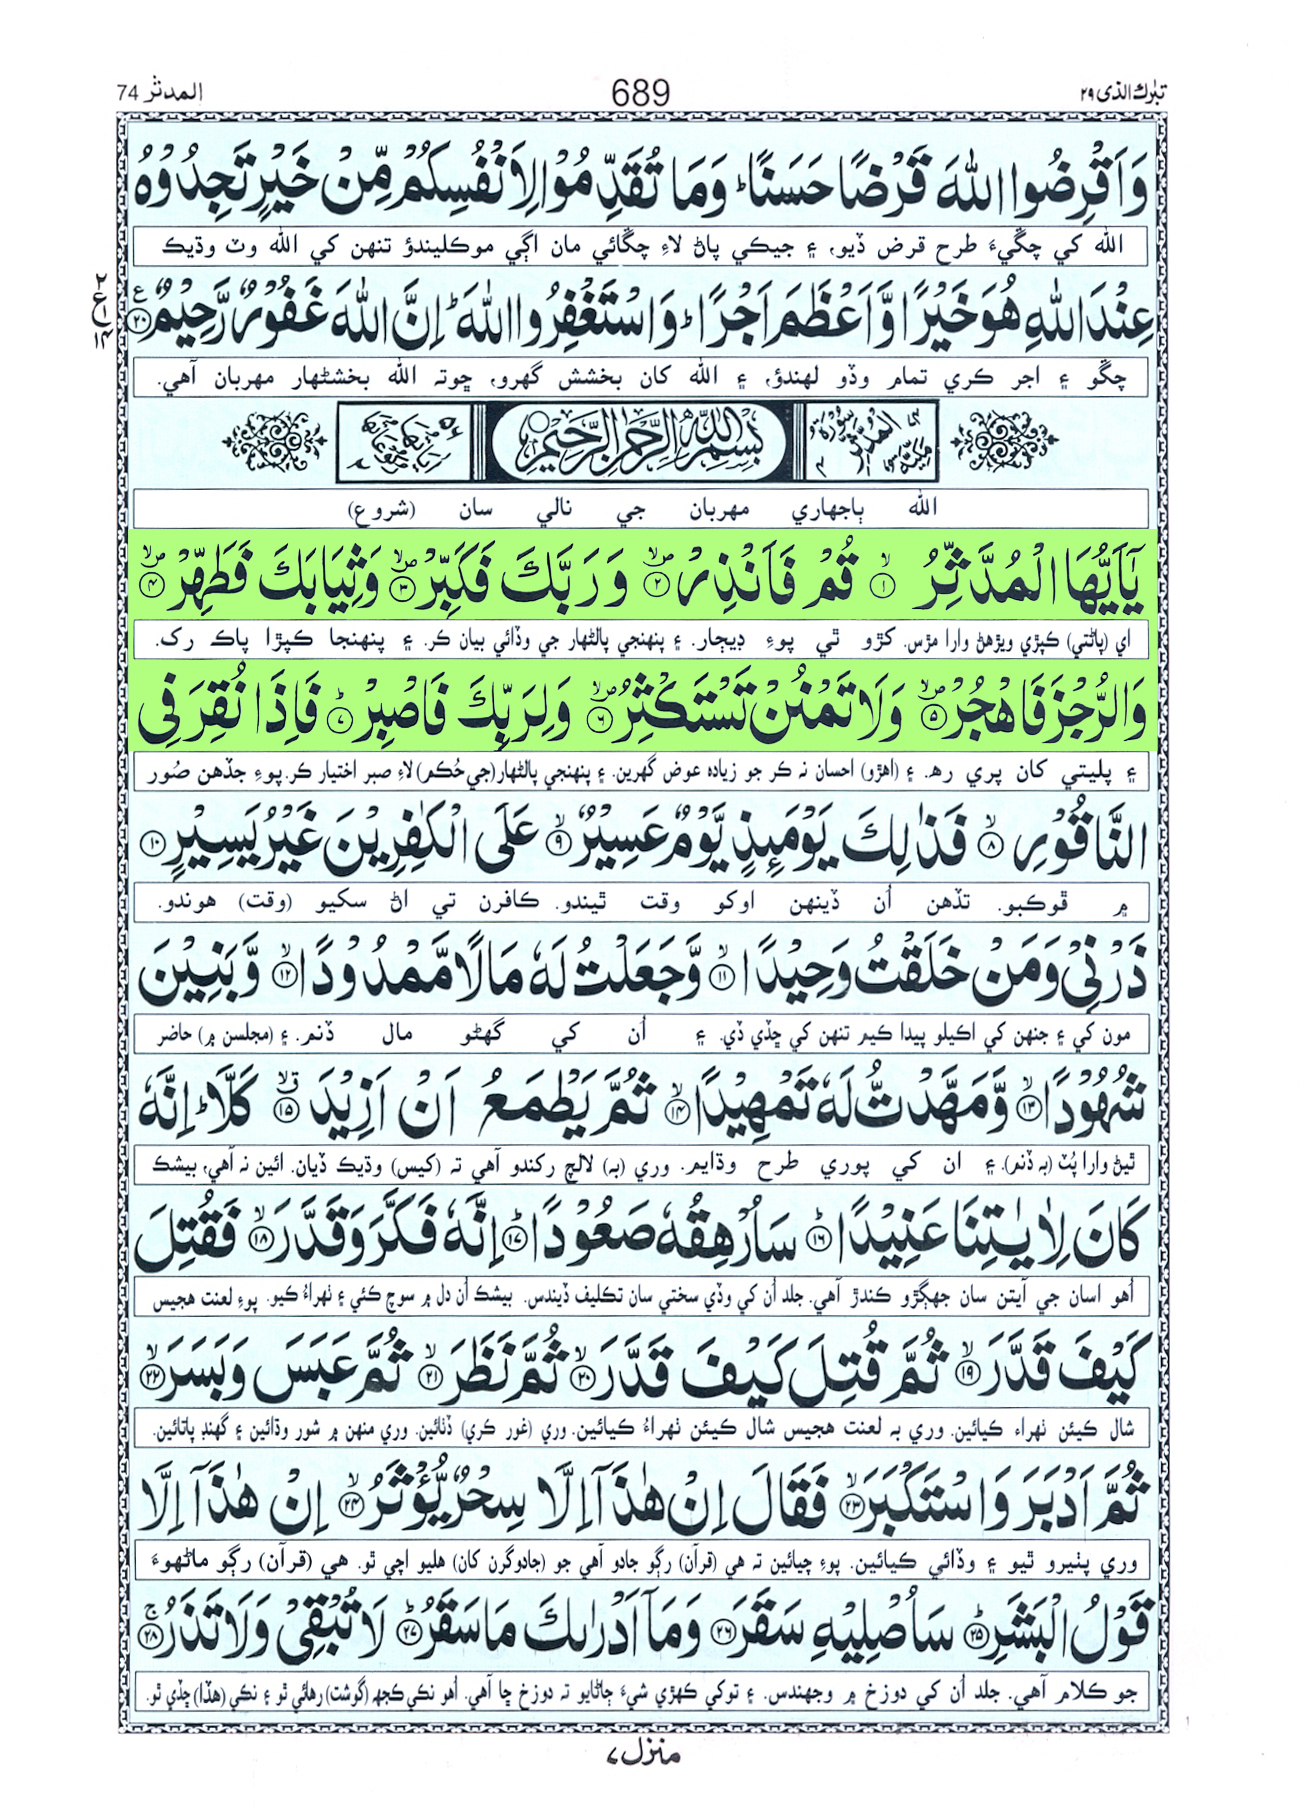 تبٰرك الذی ۲۹
689
المدثر 74
وَاَقْرِضُوا اللّٰهَ قَرْضًا حَسَنًا ؕ وَمَا تُقَدِّمُوْا لِاَنْفُسِكُمْ مِّنْ خَيْرٍ تَجِدُوْهُ
الله کي چڱيءَ طرح قرض ڏيو، ۽ جيڪي پاڻ لاءِ چڱائي مان اڳي موڪليندؤ تنهن کي الله وٽ وڌيڪ
عِنْدَ اللّٰهِ هُوَ خَيْرًا وَّاَعْظَمَ اَجْرًا ؕ وَاسْتَغْفِرُوا اللّٰهَ ؕ اِنَّ اللّٰهَ غَفُوْرٌ رَّحِيْمٌ ۲۰
چڱو ۽ اجر ڪري تمام وڏو لهندؤ، ۽ الله کان بخشش گهرو، ڇوته الله بخشڻهار مهربان آهي.
بِسْمِ اللّٰهِ الرَّحْمٰنِ الرَّحِيْمِ
الله ٻاجهاري مهربان جي نالي سان (شروع)
يٰۤاَيُّهَا الْمُدَّثِّرُ ۱ قُمْ فَاَنْذِرْ ۲ وَرَبَّكَ فَكَبِّرْ ۳ وَثِيَابَكَ فَطَهِّرْ ۴
اي (پاڻتي) ڪپڙي ويڙهڻ وارا مڙس. کڙو ٿي پوءِ ڊيڄار. ۽ پنهنجي پالڻهار جي وڏائي بيان ڪر. ۽ پنهنجا ڪپڙا پاڪ رک.
وَالرُّجْزَ فَاهْجُرْ ۵ وَلَا تَمْنُنْ تَسْتَكْثِرُ ۶ وَلِرَبِّكَ فَاصْبِرْ ۷ فَاِذَا نُقِرَ فِى
۽ پليتي کان پري رھ. ۽ (اهڙو) احسان نہ ڪر جو زياده عوض گهرين. ۽ پنهنجي پالڻهار (جي حُڪم) لاءِ صبر اختيار ڪر. پوءِ جڏهن صُور
النَّاقُوْرِ ۸ فَذٰلِكَ يَوْمَئِذٍ يَّوْمٌ عَسِيْرٌ ۹ عَلَى الْكٰفِرِيْنَ غَيْرُ يَسِيْرٍ ۱۰
۾ ڦوڪبو. تڏهن اُن ڏينهن اوکو وقت ٿيندو. ڪافرن تي اڻ سکيو (وقت) هوندو.
ذَرْنِىْ وَمَنْ خَلَقْتُ وَحِيْدًا ۱۱ وَّجَعَلْتُ لَهٗ مَالًا مَّمْدُوْدًا ۱۲ وَّبَنِيْنَ
مون کي ۽ جنهن کي اڪيلو پيدا ڪيم تنهن کي ڇڏي ڏي. ۽ اُن کي گهڻو مال ڏنم. ۽ (مجلسن ۾) حاضر
شُهُوْدًا ۱۳ وَّمَهَّدْتُّ لَهٗ تَمْهِيْدًا ۱۴ ثُمَّ يَطْمَعُ اَنْ اَزِيْدَ ۱۵ كَلَّا ؕ اِنَّهٗ
ٿيڻ وارا پُٽ (بہ ڏنم). ۽ ان کي پوري طرح وڌايم. وري (بہ) لالچ رکندو آهي تہ (کيس) وڌيڪ ڏيان. ائين نہ آهي، بيشڪ
كَانَ لِاٰيٰتِنَا عَنِيْدًا ۱۶ سَاُرْهِقُهٗ صَعُوْدًا ۱۷ اِنَّهٗ فَكَّرَ وَقَدَّرَ ۱۸ فَقُتِلَ
اُهو اسان جي آيتن سان جهڳڙو ڪندڙ آهي. جلد اُن کي وڏي سختي سان تڪليف ڏيندس. بيشڪ اُن دل ۾ سوچ ڪئي ۽ ٺهراءُ ڪيو. پوءِ لعنت هجيس
كَيْفَ قَدَّرَ ۱۹ ثُمَّ قُتِلَ كَيْفَ قَدَّرَ ۲۰ ثُمَّ نَظَرَ ۲۱ ثُمَّ عَبَسَ وَبَسَرَ ۲۲
شال ڪيئن ٺهراء ڪيائين. وري بہ لعنت هجيس شال ڪيئن ٺهراءُ ڪيائين. وري (غور ڪري) ڏٺائين. وري منهن ۾ شور وڌائين ۽ گهنڊ پاتائين.
ثُمَّ اَدْبَرَ وَاسْتَكْبَرَ ۲۳ فَقَالَ اِنْ هٰذَاۤ اِلَّا سِحْرٌ يُّؤْثَرُ ۲۴ اِنْ هٰذَاۤ اِلَّا
وري پٺيرو ٿيو ۽ وڏائي ڪيائين. پوءِ چيائين تہ هي (قرآن) رڳو جادو آهي جو (جادوگرن کان) هليو اچي ٿو. هي (قرآن) رڳو ماڻهوءَ
قَوْلُ الْبَشَرِ ۲۵ سَاُصْلِيْهِ سَقَرَ ۲۶ وَمَاۤ اَدْرٰىكَ مَا سَقَرُ ۲۷ لَا تُبْقِىْ وَلَا تَذَرُ ۲۸
جو ڪلام آهي. جلد اُن کي دوزخ ۾ وجهندس. ۽ توکي ڪهڙي شيءَ ڄاڻايو تہ دوزخ ڇا آهي. اُهو نڪي ڪجهہ (گوشت) رهائي ٿو ۽ نڪي (هڏا) ڇڏي ٿو.
منزل ۷